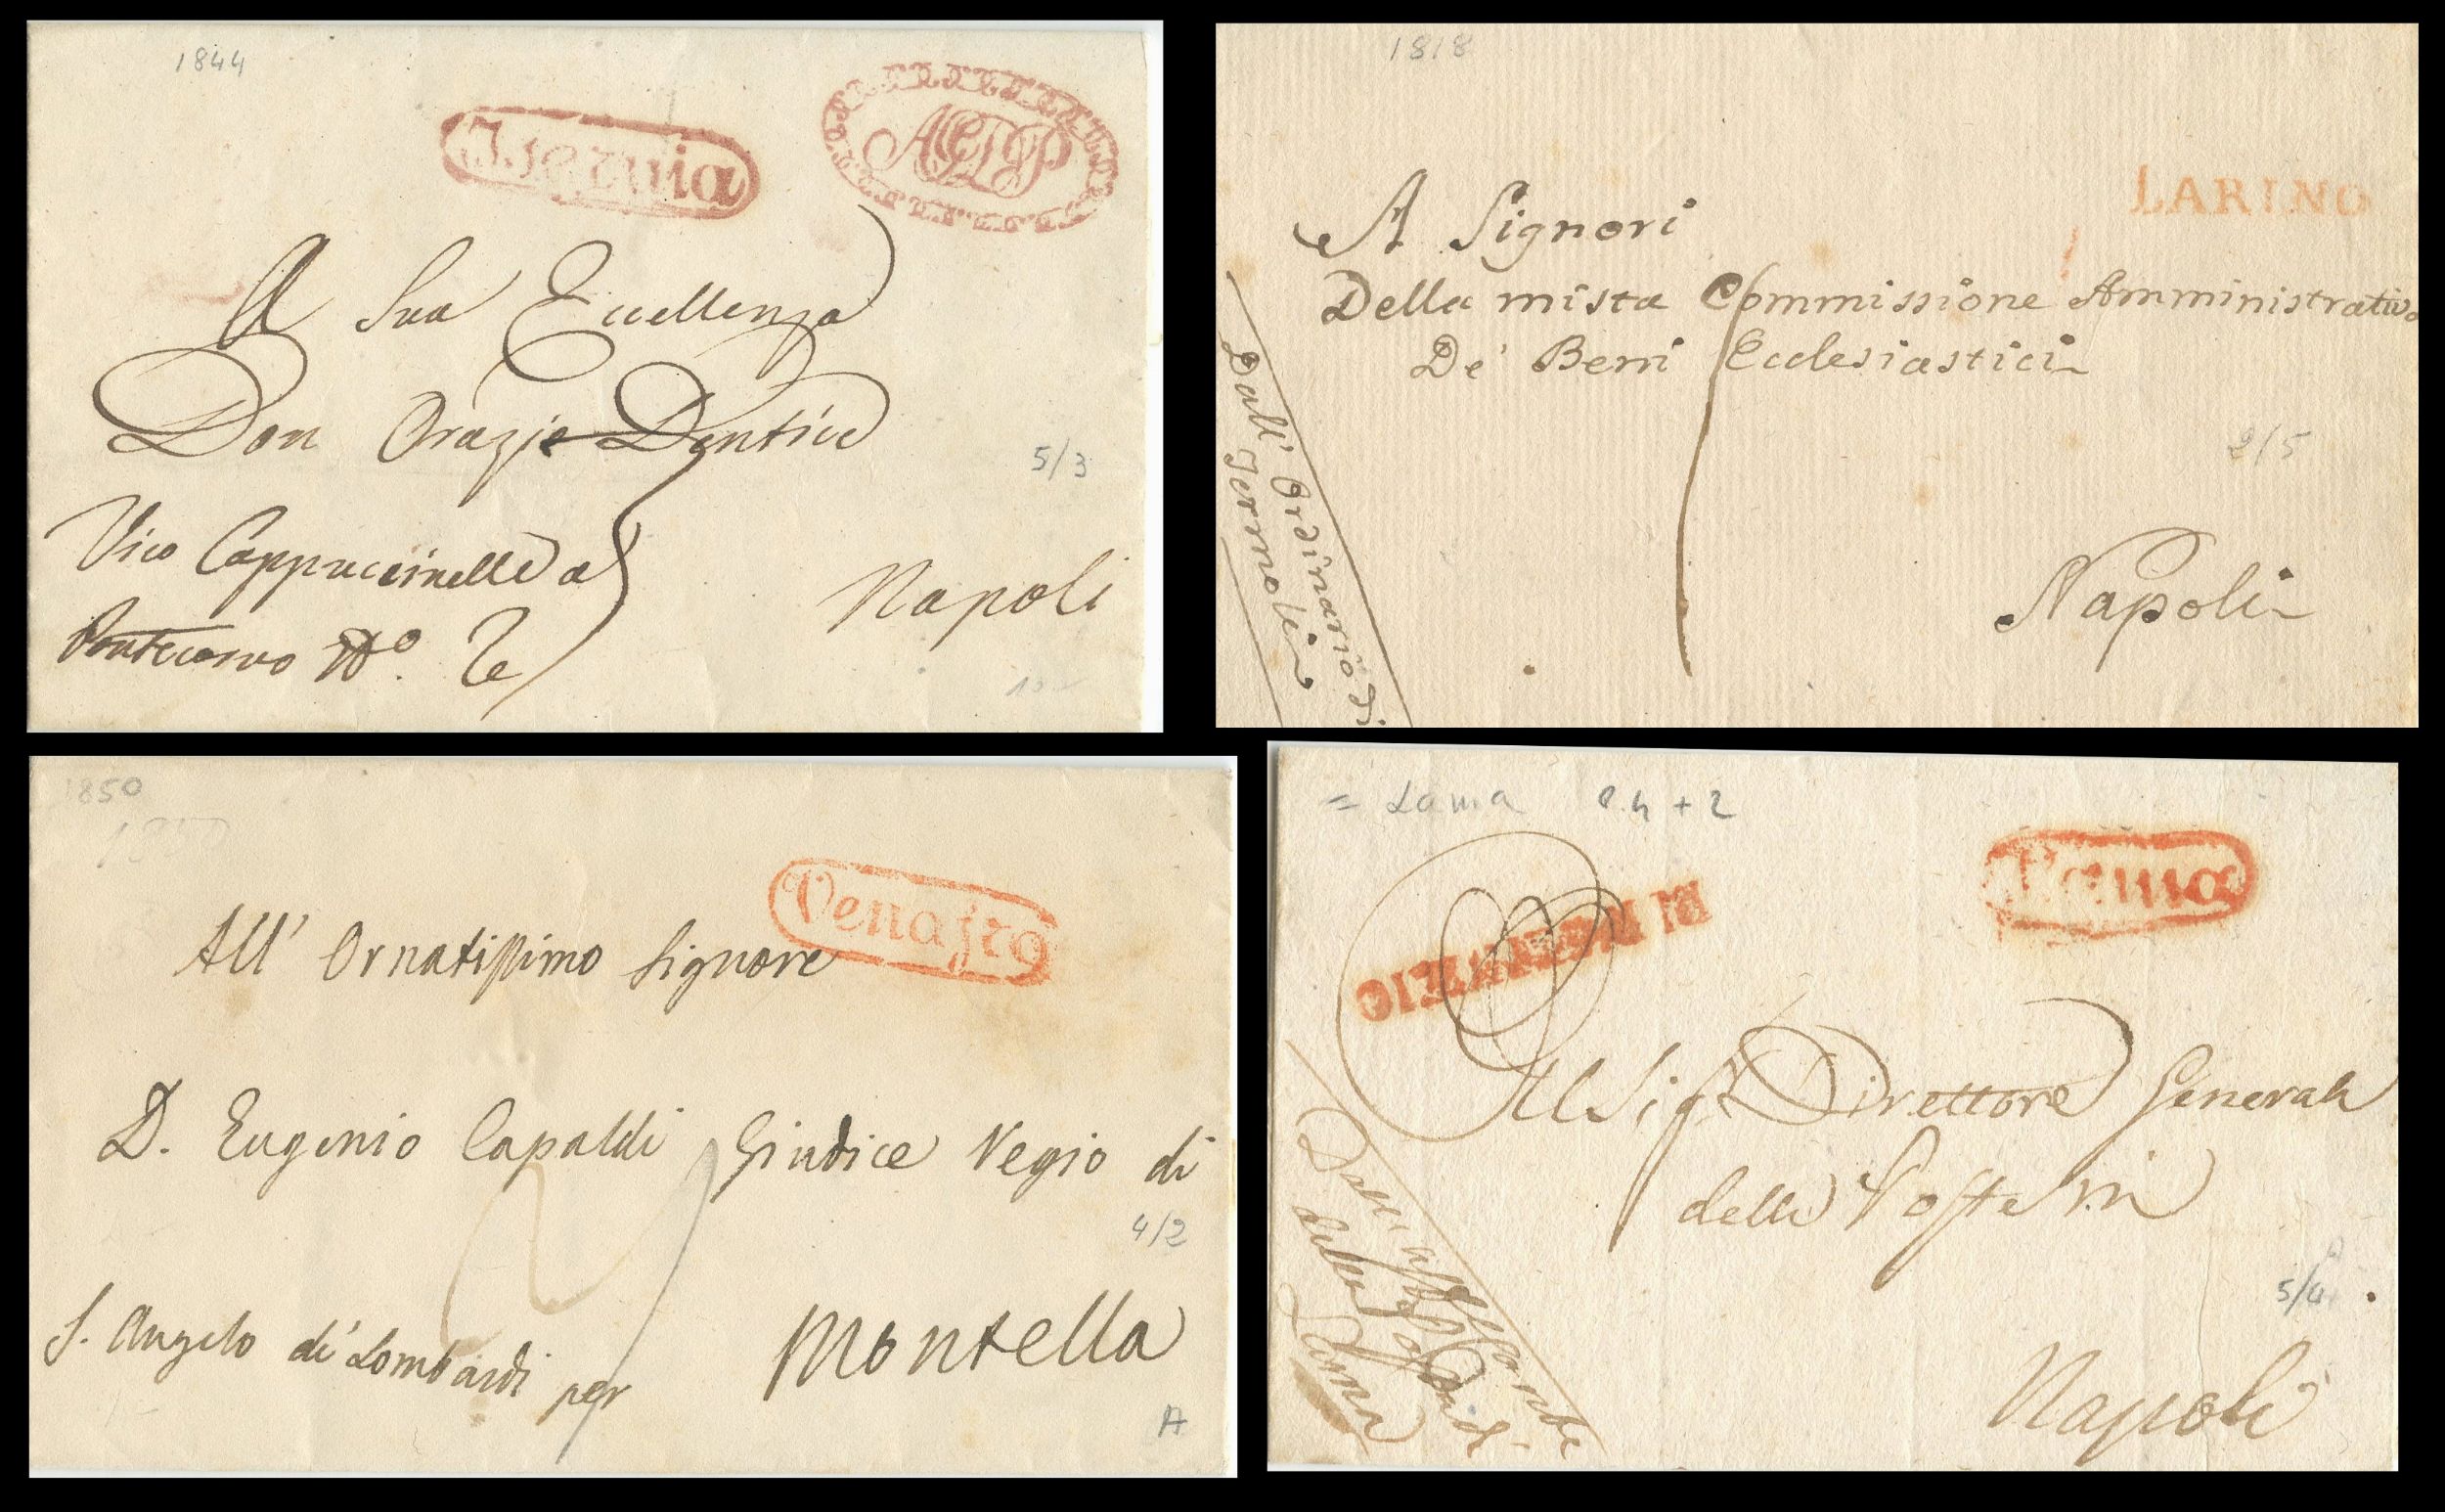 1844
Isernia
AGDP
A Sua Eccellenza
Don Orazio Dentice
5/3
Vico Cappuccinelle a
Pontecorvo N.º
Napoli
1818
LARINO
A Signori
Della mista Commissione Amministrativa
De' Beni Ecclesiastici
2/5
Dall' Ordinario di
Termoli
Napoli
1850
Venafro
All' Ornatissimo Signore
D. Eugenio Capaldi Giudice Regio di
4/2
S. Angelo di Lombardi per
Montella
A
= Lama + 2
Lama
DI R SERVIZIO
Al Sig.r Direttore Generale
delle Poste in
5/4
Napoli
Lama